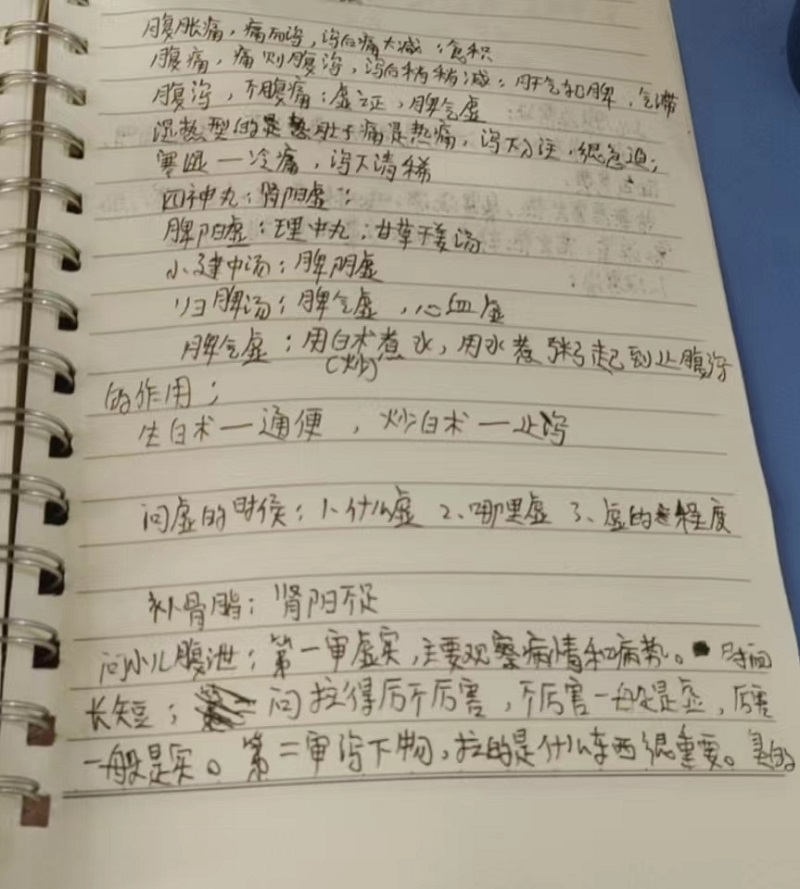 腹胀痛，痛而泻，泻后痛大减：食积
腹痛，痛则腹泻，泻后稍稍减：肝气犯脾，气滞
腹泻，不腹痛：虚证，脾气虚
湿热型的是肚子痛是热痛，泻下分注，很急迫；
寒湿—冷痛，泻下清稀
四神丸：肾阳虚：
脾阳虚：理中丸：甘草干姜汤
小建中汤：脾阴虚
归脾汤：脾气虚，心血虚
脾气虚：用白术煮水，用水煮粥起到止腹泻
（炒）
的作用；
生白术—通便，炒白术—止泻
问虚的时候：1、什么虚 2、哪里虚 3、虚的程度
补骨脂：肾阳不足
问小儿腹泄：第一审虚实，主要观察病情和病势。时间
长短；问拉得厉不厉害，不厉害一般是虚，厉害
一般是实。第二审泻下物，拉的是什么东西很重要。